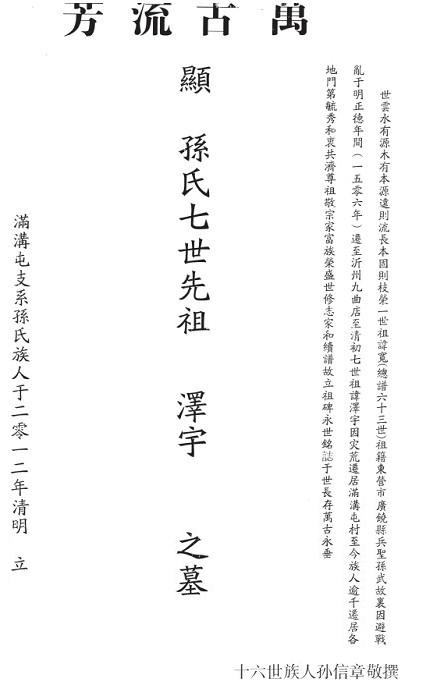 萬古流芳
世雲水有源木有本源遠則流長本固則枝榮一世祖諱寬(總譜六十三世)祖籍東營市廣饒縣兵聖孫武故裏因避戰
亂于明正德年間(一五零六年)遷至沂州九曲店至清初七世祖諱澤宇因灾荒遷居滿溝屯村至今族人逾千遷居各
地門第毓秀和衷共濟尊祖敬宗家富族榮盛世修志家和續譜故立祖碑永世銘誌于世長存萬古永垂
顯 孫氏七世先祖 澤宇 之墓
滿溝屯支系孫氏族人于二零一二年清明 立
十六世族人孙信章敬撰